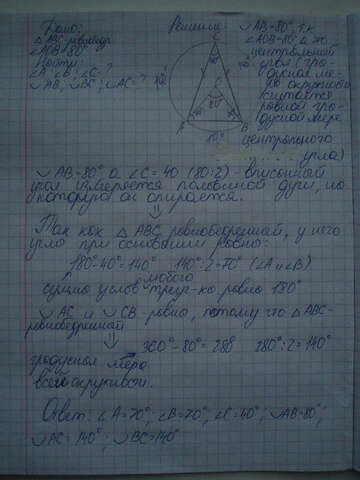 Дано:
△ABC-равнобедр.
∠AOB=80°
Найти:
∠A, ∠B, ∠C-?
◡AB, ◡BC, ◡AC=?
Решение:
◡AB=80°, т.к
∠AOB=80°, а это
центральный
угол (гра-
дусная ме-
ра окружности
считается
ровной гра-
дусной мере
центрального
угла)
C
O
80°
A
B
◡AB=80° а ∠C=40 (80:2) - вписанный
угол измеряется половиной дуги, на
которую он опирается.
⇓
Так как △ABC равнобедренный, у него
углы при основании равны:
180°-40°=140° 140°:2=70° (∠A и ∠B)
сумма углов любого треуг-ка равна 180°
◡AC и ◡CB-равны, потому что △ABC-
равнобедренный
⇓
360°-80°=280 280°:2=140°
градусная мера
всей окружности.
Ответ: ∠A=70°; ∠B=70°; ∠C=40°; ◡AB=80°;
◡AC=140°; ◡BC=140°